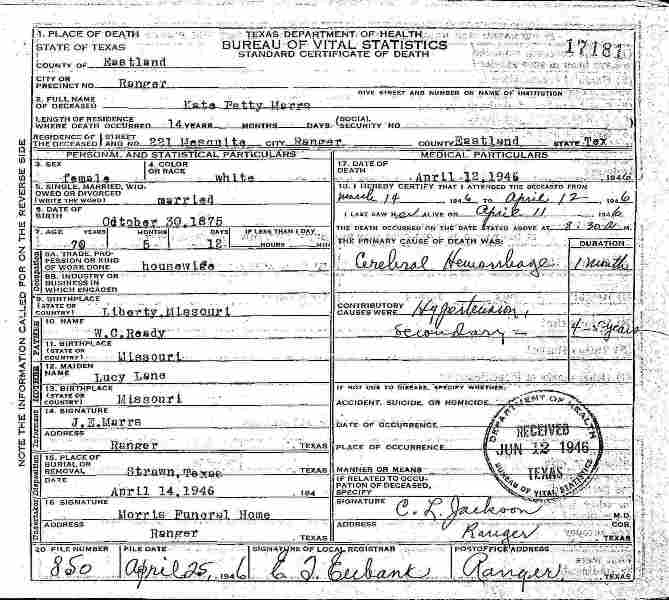 1. PLACE OF DEATH
STATE OF TEXAS
TEXAS DEPARTMENT OF HEALTH
BUREAU OF VITAL STATISTICS
STANDARD CERTIFICATE OF DEATH
17181
COUNTY OF Eastland
CITY OR
PRECINCT NO. Ranger
GIVE STREET AND NUMBER OR NAME OF INSTITUTION
2. FULL NAME
OF DECEASED Kate Petty Marrs
LENGTH OF RESIDENCE
WHERE DEATH OCCURRED 14 YEARS MONTHS DAYS (SOCIAL
SECURITY NO.
RESIDENCE OF STREET
THE DECEASED AND NO. 221 Mesquite CITY Ranger COUNTY Eastland STATE Tex
PERSONAL AND STATISTICAL PARTICULARS
3. SEX
female
4. COLOR
OR RACE
white
5. SINGLE, MARRIED, WID-
OWED OR DIVORCED
(WRITE THE WORD) married
6. DATE OF
BIRTH Odtober 30,1875
7. AGE YEARS MONTHS DAYS IF LESS THAN 1 DAY
70 5 12 HOURS MIN
8A. TRADE, PRO-
FESSION OR KIND
OF WORK DONE housewife
8B. INDUSTRY OR
BUSINESS IN
WHICH ENGAGED
9. BIRTHPLACE
(STATE OR
COUNTRY) Liberty,Missouri
10. NAME
W.C.Ready
11. BIRTHPLACE
(STATE OR
COUNTRY) Missouri
12. MAIDEN
NAME Lucy Lane
13. BIRTHPLACE
(STATE OR
COUNTRY) Missouri
14. SIGNATURE
J.E.Marrs
ADDRESS
Ranger TEXAS
15. PLACE OF
BURIAL OR
REMOVAL Strawn,Texas
DATE
April 14,1946 194
16 SIGNATURE
Morris Funeral Home
ADDRESS
Ranger TEXAS
MEDICAL PARTICULARS
17. DATE OF
DEATH April 12,1946 1946
18. I HEREBY CERTIFY THAT I ATTENDED THE DECEASED FROM
March 14 1946 TO April 12 1946
I LAST SAW her ALIVE ON April 11 1946
THE DEATH OCCURRED ON THE DATE STATED ABOVE AT 8:30 M.
THE PRIMARY CAUSE OF DEATH WAS: DURATION
Cerebral Hemorrhage 1 month
CONTRIBUTORY
CAUSES WERE Hypertension,
Secondary 4-5 years
IF NOT DUE TO DISEASE, SPECIFY WHETHER:
ACCIDENT, SUICIDE, OR HOMICIDE
DATE OF OCCURRENCE
PLACE OF OCCURRENCE
MANNER OR MEANS
IF RELATED TO OCCU-
PATION OF DECEASED,
SPECIFY
SIGNATURE C. L. Jackson M.D.
COR.
ADDRESS Ranger TEXAS
DEPARTMENT OF HEALTH
RECEIVED
JUN 12 1946
TEXAS
BUREAU OF VITAL STATISTICS
20 FILE NUMBER FILE DATE SIGNATURE OF LOCAL REGISTRAR POSTOFFICE ADDRESS
850 April 25, 1946 Eubank Ranger
NOTE THE INFORMATION CALLED FOR ON THE REVERSE SIDE
Occupation
FATHER
MOTHER
Informant
Disposition
Undertaker